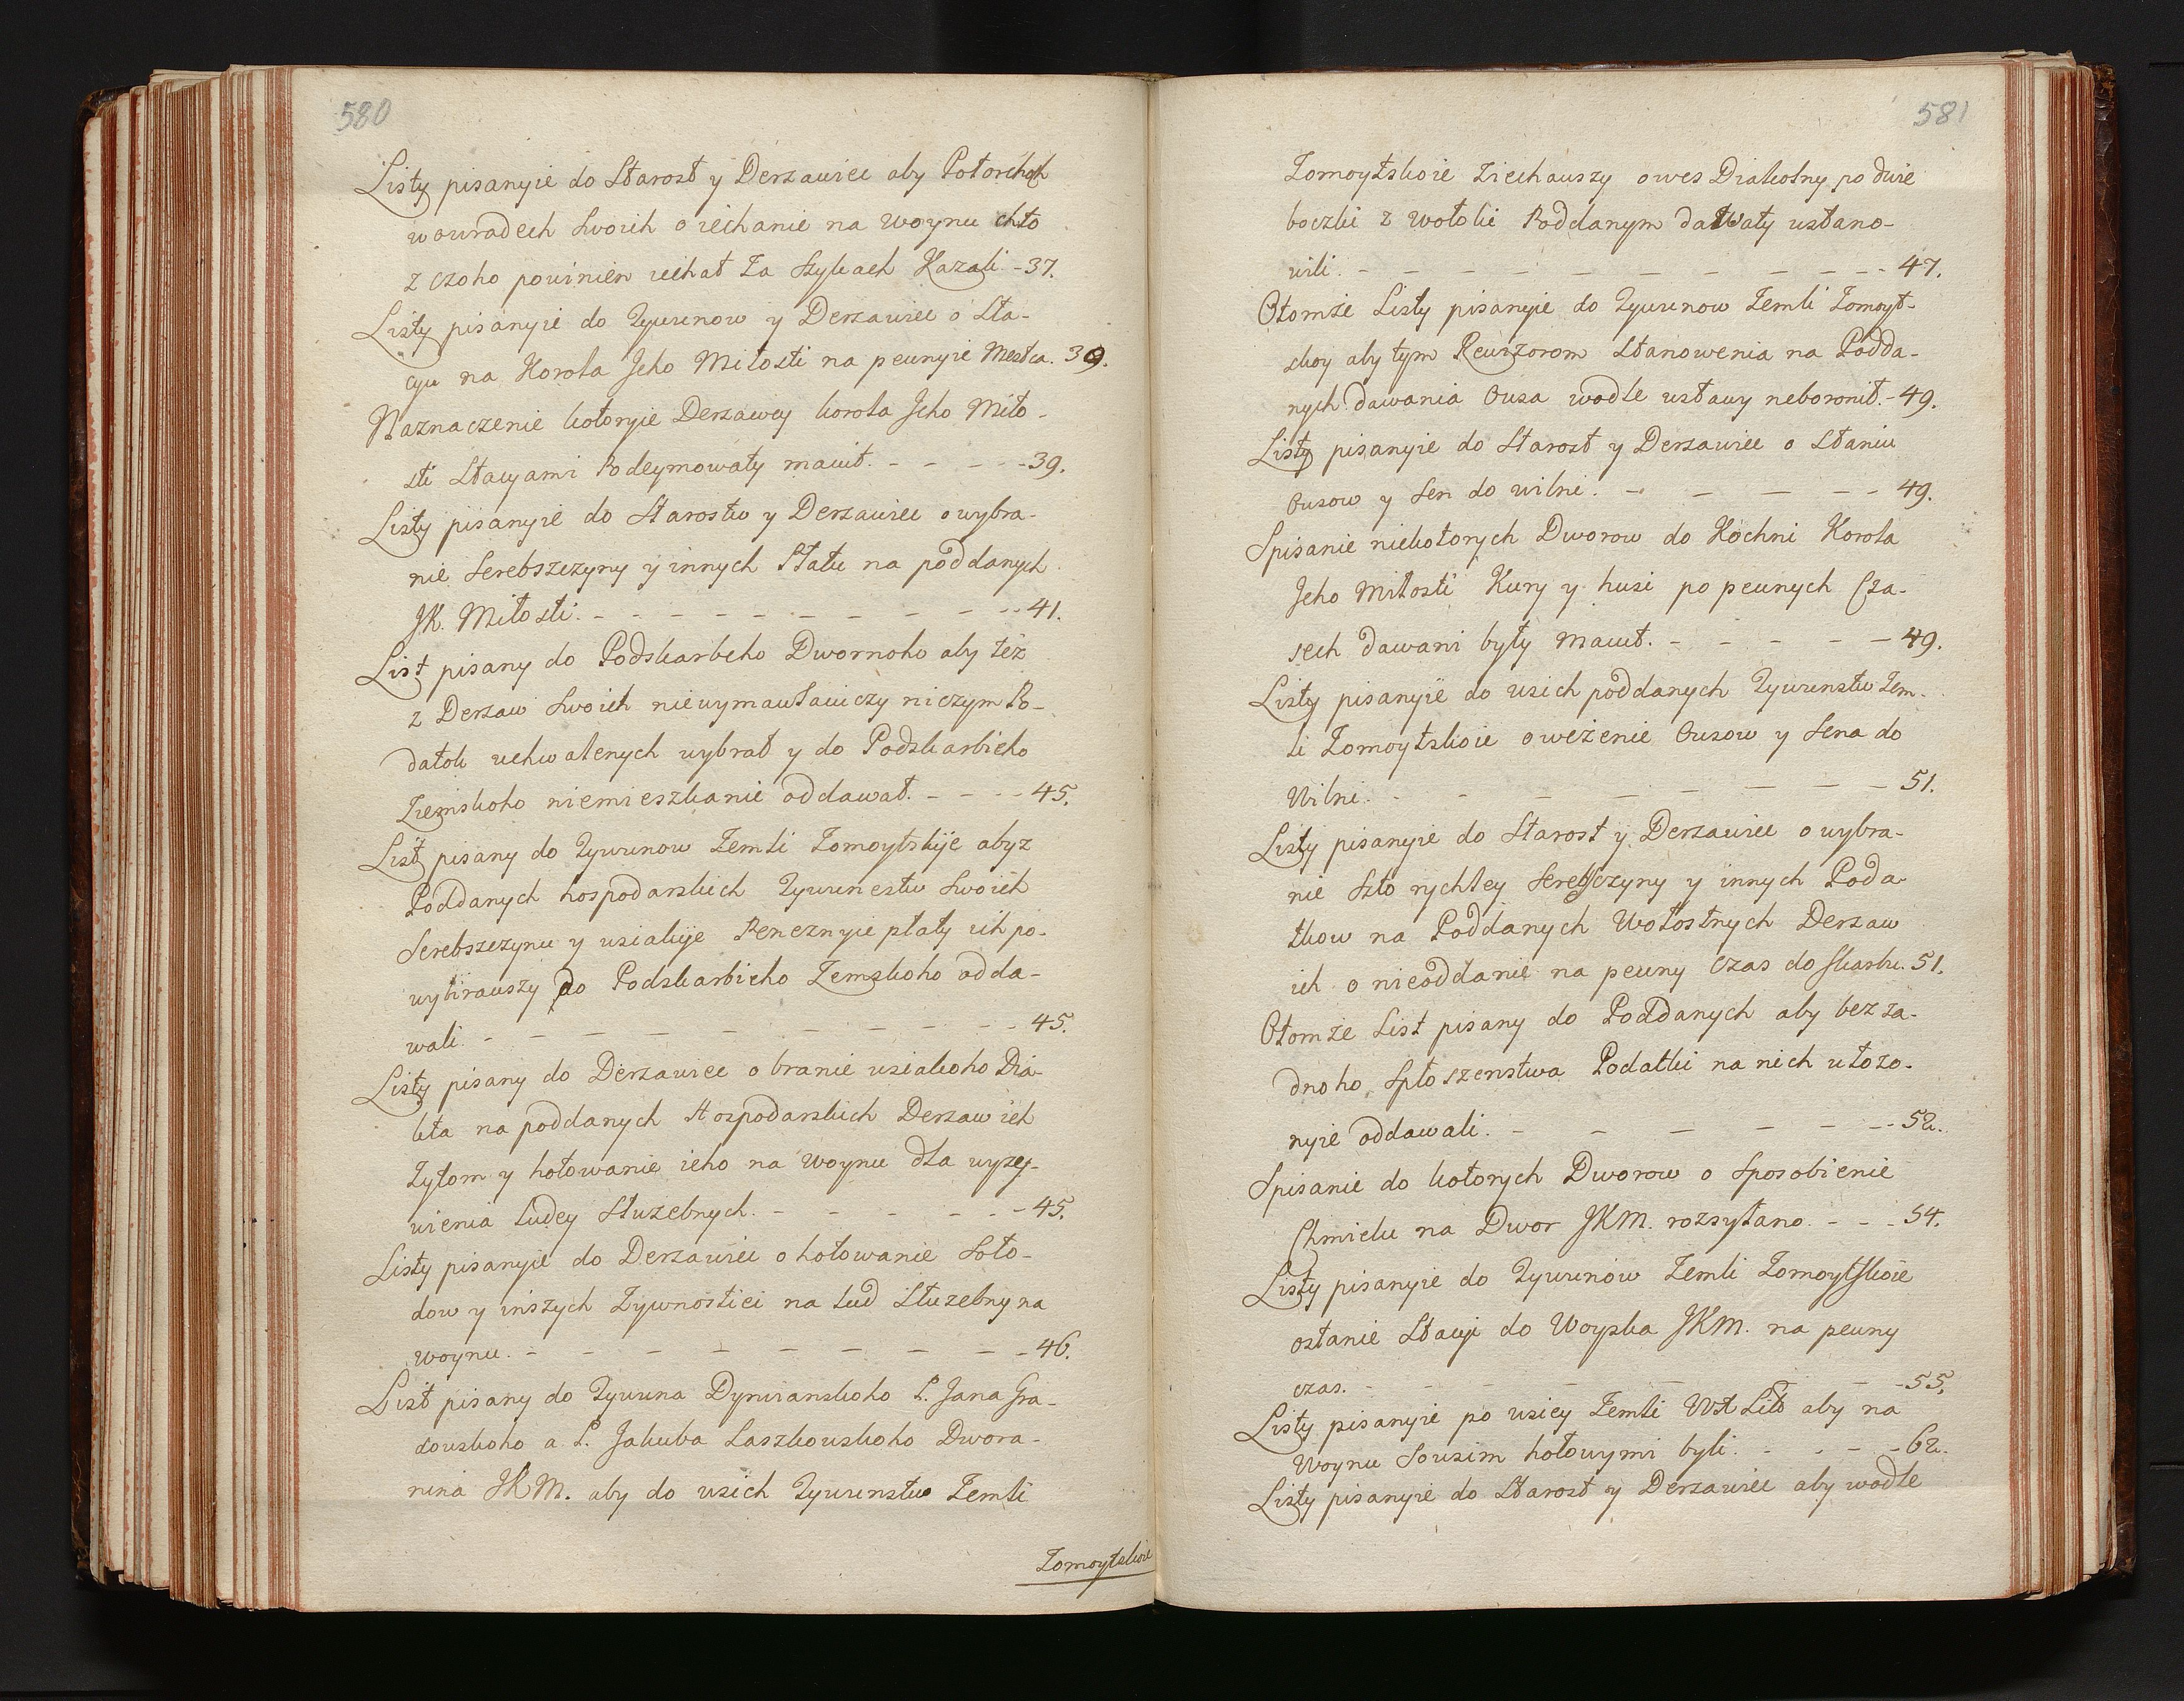 580
Listy pisanyie do Starost y Derzawiec aby Potorchoch
wouradech swoich o iechanie na woynu chto
z czoho powinien iechat za Szykach Kazali - 37.
Listy pisanyie do Tywunow y Derzawiec o Sta-
cyu na Korola Jeho Miłosti na pewnyie Mestca. 39.
Naznaczenie kotoryie Derzawcy korola Jeho Miło-
sti Stacyami Podeymowaty maiut. - - - - - 39.
Listy pisanyie do Starostw y Derzawiec o wybra-
nie Serebszczyny y innych Płatu na poddanych
JK. Miłosti. - - - - - - - - - - 41.
List pisany do Podskarbeho Dwornoho aby też
z Derzaw swoich niewymawlaiuczy niczym Po-
datok uchwalenych wybrał y do Podskarbieho
Ziemskoho niemieszkanie oddawał. - - - - 45.
List pisany do Tywunow Zemli Zomoytskije aby z
Poddanych hospodarskich Tywunestw Swoich
Serebszczynu y usiakije Peneznyie płaty ich po-
wybirawszy do Podskarbieho Zemskoho odda-
wali. - - - - - - - - - - 45.
Listy pisany do Derzawiec o branie usiakoho Dia-
kła na poddanych Hospodarskich Derzaw ich
Zytom y hotowanie ieho na woynu dla wyzy-
wienia ludey Słuzebnych. - - - - - - 45.
Listy pisanyie do Derzawiec o hotowanie Soło-
dow y inszych Zywnostiei na lud Słuzebny na
woynu. - - - - - - - - - 46.
List pisany do Tywuna Dyrwianskoho P. Jana Gra-
dowskoho a P. Jakuba Laszkowskoho Dwora-
nina JKM. aby do usich Tywunstw Zemli
Zomoytskoie
581
Zomoytskoie Ziechauszy owes Diakolny po dwie
boczki z wołoki Poddanym dawaty ustano-
wili. - - - - - - - - - - - 47.
Otomże Listy pisanyie do Tywunow Zemli Zomoyt-
skoy aby tym Rewizorom Stanowenia na Podda-
nych dawania Owsa wodle ustawy neboronił. - 49.
Listy pisanyie do Starost y Derzawiec o Słaniu
Owsow y Sen do wilni. - - - - - 49.
Spisanie niekotorych Dworow do Kochni Korola
Jeho Miłosti Kury y husi po pewnych Cza-
sech dawani były maiut. - - - - - 49.
Listy pisanyie do usich poddanych Tywunstw Zem-
li Zomoytskoie o weżenie Owsow y Sena do
Wilni. - - - - - - - - 51.
Listy pisanyie do Starost y Derzawiec o wybra-
nie Szto rychley Serebszczyny y innych Poda-
tkow na Poddanych Wołostnych Derzaw
ich o nieoddanie na pewny Czas do skarbu. 51.
Otomże List pisany do Poddanych aby bez za-
dnoho Spłoszenstwa Podatki na nich ułozo-
nyie oddawali. - - - - - - - 52.
Spisanie do kotorych Dworow o Sposobienie
Chmielu na Dwor JKM. rozsyłano. - - - 54.
Listy pisanyie do Tywunow Zemli Zomoytskoie
osłanie Stacyi do Woyska JKM. na pewny
czas. - - - - - - - - 55.
Listy pisanyie po usiey Zemli WX Lito aby na
Woynu Sowsim hotowymi byli. - - - - 62.
Listy pisanyie do Starost y Derzawiec aby wodle